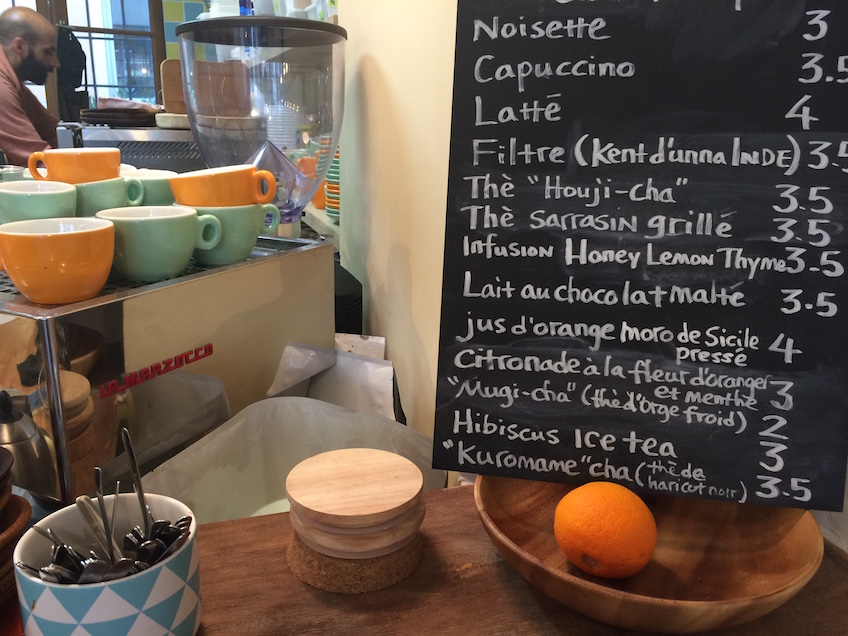 Noisette 3
Capuccino 3.5
Latté 4
Filtre (Kent d'unna INDE) 3.5
Thè "Houji-cha" 3.5
Thè Sarrasin grillé 3.5
Infusion Honey Lemon Thyme 3.5
Lait au chocolat malté 3.5
jus d'orange moro de Sicile
pressé 4
Citronade à la fleur d'oranger
et menthe 3
"Mugi-cha" (thè d'Orge froid) 2
Hibiscus Ice tea 3
"Kuromame" cha (thè de
haricot noir) 3.5
LA MARZOCCO